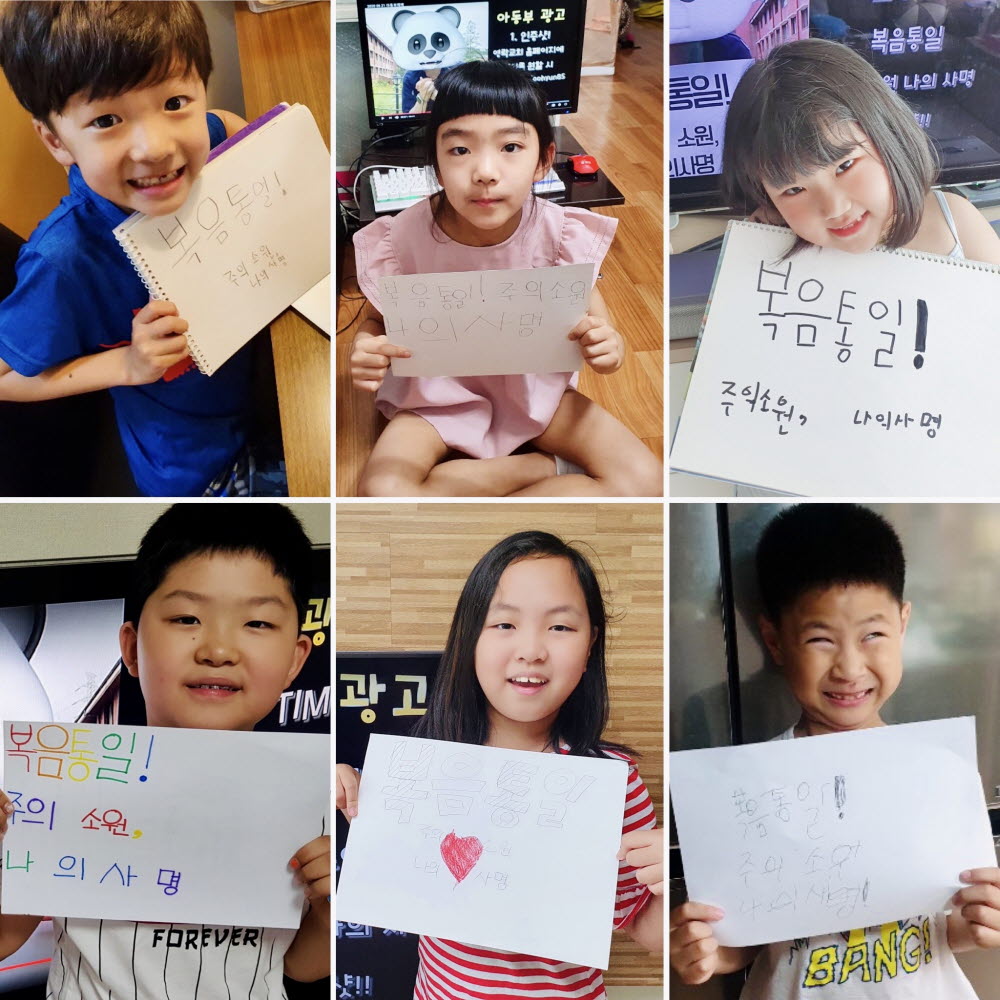 복음통일!
주의 소원
나의 사명
아동부 광고
1. 인증샷!
연락교회 홈페이지에
원할 시
복음통일! 주의소원
나의사명
복음통일
나의 사명
통일!
소원,
의사명
복음통일!
주의소원, 나의사명
광
TIM
복음통일!
주의 소원,
나의사명
FOREVER
광고
복음통일
나의 사명
샷!!
복음통일!
주의 소원
나의사명!
BANG!